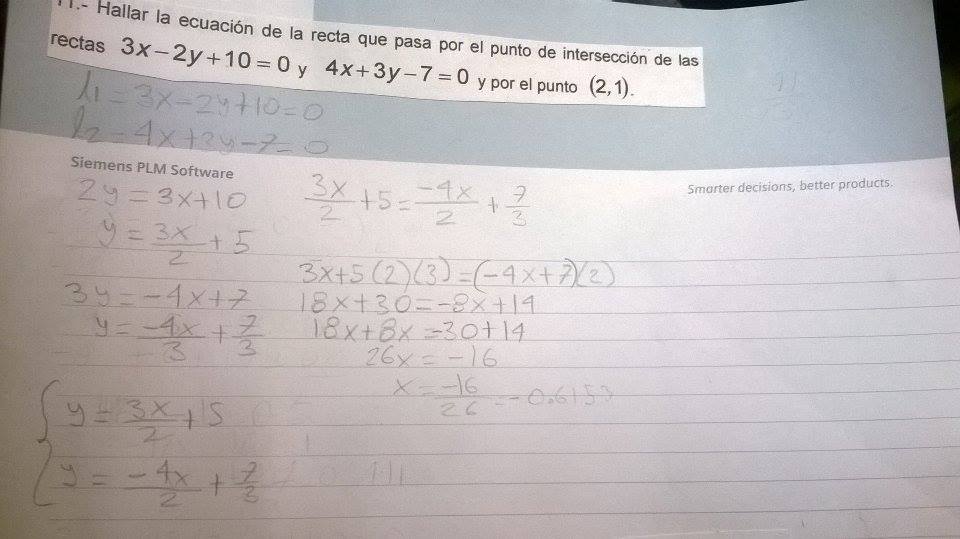 11.- Hallar la ecuación de la recta que pasa por el punto de intersección de las
rectas 3x-2y+10=0 y 4x+3y-7=0 y por el punto (2,1).
l1 = 3x-2y+10=0
l2 = 4x+3y-7=0
Siemens PLM Software
Smarter decisions, better products.
2y = 3x+10
y = 3x/2 + 5
3y = -4x+7
y = -4x/3 + 7/3
{ y = 3x/2 + 5
y = -4x/2 + 7/3
3x/2 + 5 = -4x/2 + 7/3
3x+5(2)(3)=(-4x+7)(2)
18x+30=-8x+14
18x+8x=-30+14
26x = -16
x = -16/26 = -0.6153